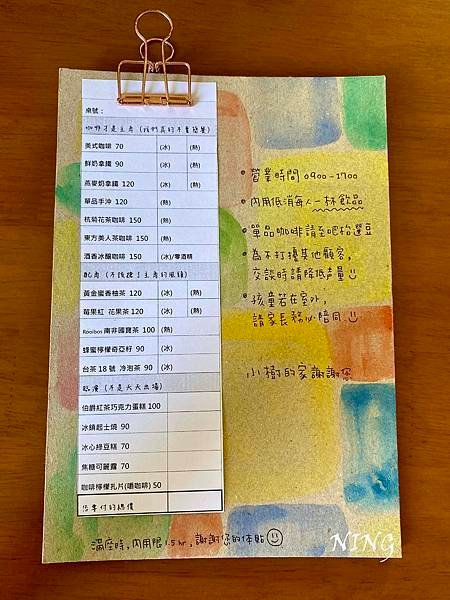 桌號：
咖啡才是主角（我們真的不賣簡餐）
美式咖啡 70 (冰) (熱)
鮮奶拿鐵 90 (冰) (熱)
燕麥奶拿鐵 120 (冰) (熱)
單品手沖 120 (熱)
杭菊花茶咖啡 150 (熱)
東方美人茶咖啡 150 (熱)
酒香冰釀咖啡 150 (冰)/零酒精
配角（不後搶主角的風頭）
黃金蜜香柚茶 120 (冰) (熱)
莓果紅 花果茶 120 (冰) (熱)
Rooibos 南非國寶茶 100 (熱)
蜂蜜檸檬奇亞籽 90 (冰)
台茶 18 號 冷泡茶 90 (冰)
臨演（不是天天出場）
伯爵紅茶巧克力蛋糕 100
冰鎮起士燒 90
冰心綠豆糕 70
焦糖可麗露 70
咖啡檸檬扎片(嚼咖啡) 50
您要付的總價
營業時間 0900-1700
內用低消每人一杯飲品
單品咖啡請至吧枱選豆
為不打擾其他顧客，
交談時請降低声量
孩童若在室外，
請家長務必陪同
小樹的家謝謝您
滿座時，內用限1.5hr，謝謝您的体貼
NING